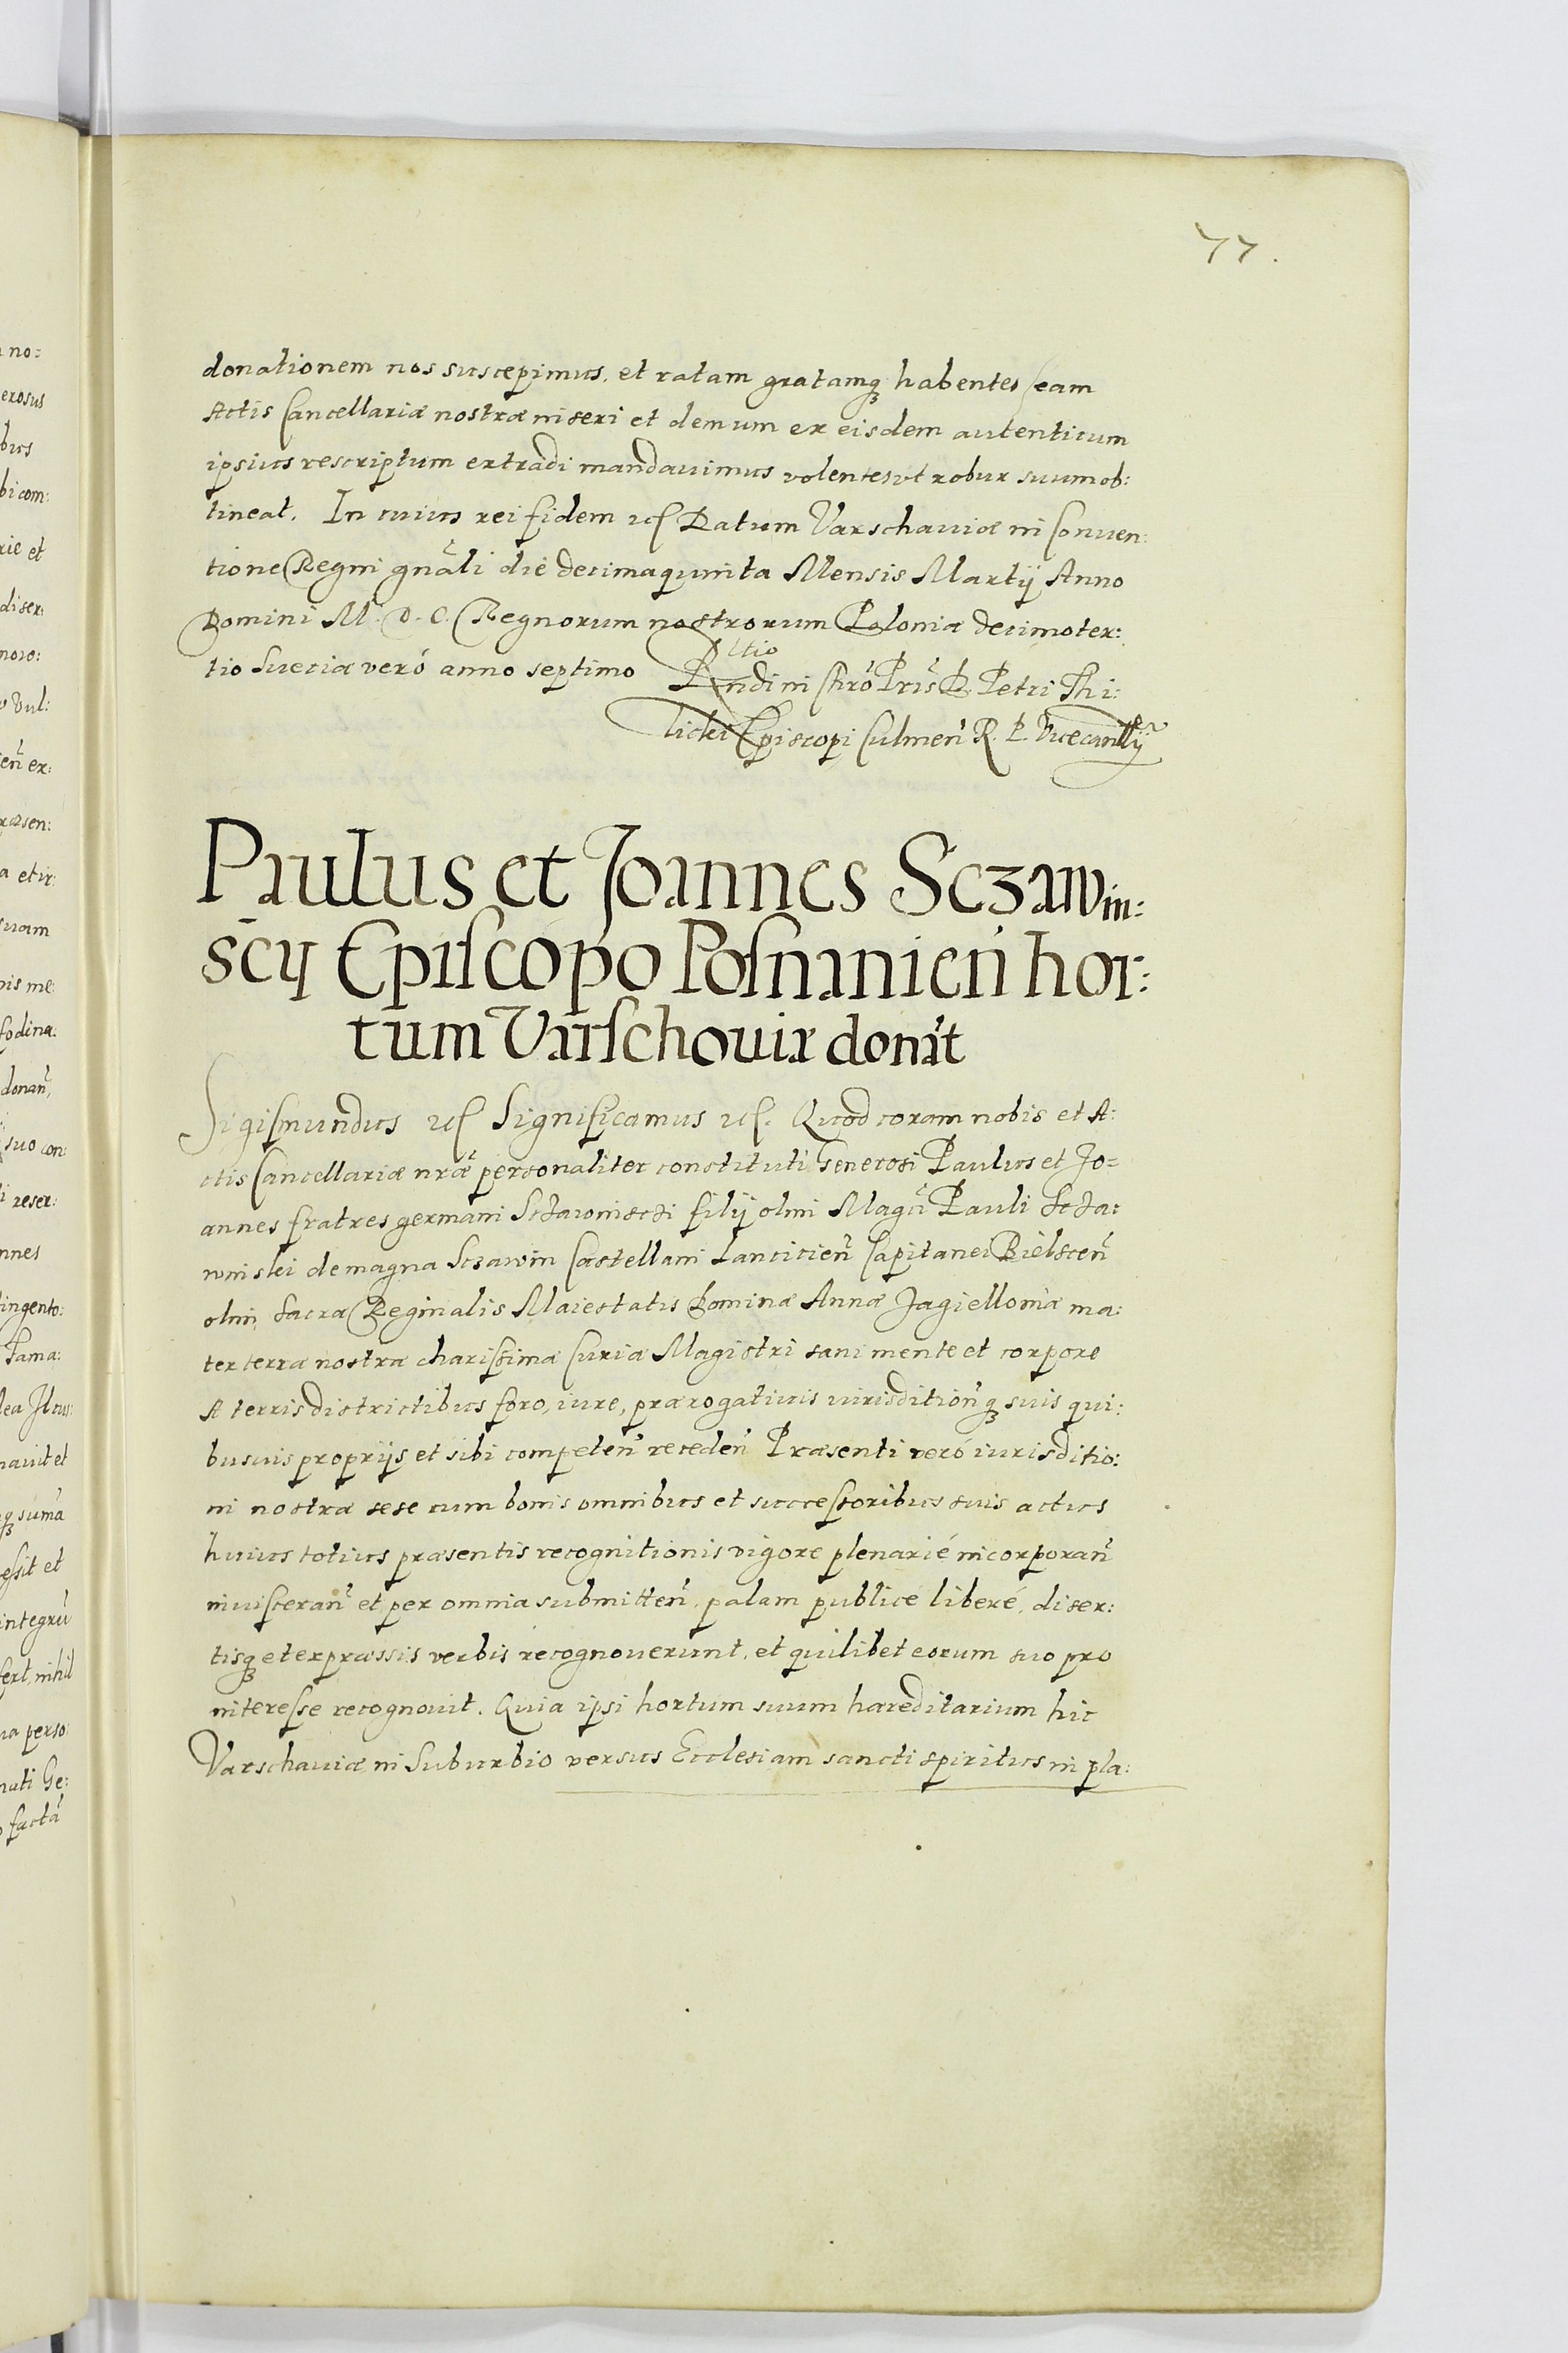 77.
donationem nos suscepimus, et ratam gratamq₃ habentes eam
Actis Cancellariæ nostræ inseri et demum ex eisdem autenticum
ipsius rescriptum extradi mandauimus volentes vt robur suum ob:
tineat. In cuius rei fidem etc Datum Varschauiæ in Conuen:
tione Regni gnãli die decimaquinta Mensis Martij Anno
Domini M. D. C. Regnorum nostrorum Poloniæ decimoter:
tio Sueciæ veró anno septimo R̃ltio
Rndi in Chrõ Pris D. Petri Thi:
licki Episcopi Culmeñ R. P. Vicecancllrij
Paulus et Joannes Sczawin:
scij Episcopo Posnanień hor:
tum Varschouiæ donãt
Sigismundus etc Significamus etc. Quod coram nobis et A:
ctis Cancellariæ nræ̃ personaliter constituti Generosi Paulus et Jo=
annes fratres germani Sczawinscii filij olim Magci Pauli Scza:
winski de magna Sczawin Castellani Lancicień Capitanei Bielsceń
olim Sacræ Reginalis Maiestatis Dominæ Annæ Jagielloniæ ma:
terteræ nostræ charissimæ Curiæ Magistri sani mente et corpore
A terris districtibus foro, iure, prærogatiuis iurisditionq₃ suis qui:
busuis proprijs et sibi competeñ receden̄ Præsenti veró iurisditio:
ni nostræ sese cum bonis omnibus et successoribus suis actus
huius totius præsentis recognitionis vigore plenarié incorporañ
inuisceran̄ et per omnia submitteñ, palam publice liberé, diser:
tisq₃ et expræssis verbis recognouerunt, et quilibet eorum suo pro
interesse recognouit. Quia ipsi hortum suum hæreditarium hic
Varschauiæ in Suburbio versus Ecclesiam sancti spiritus in pla: